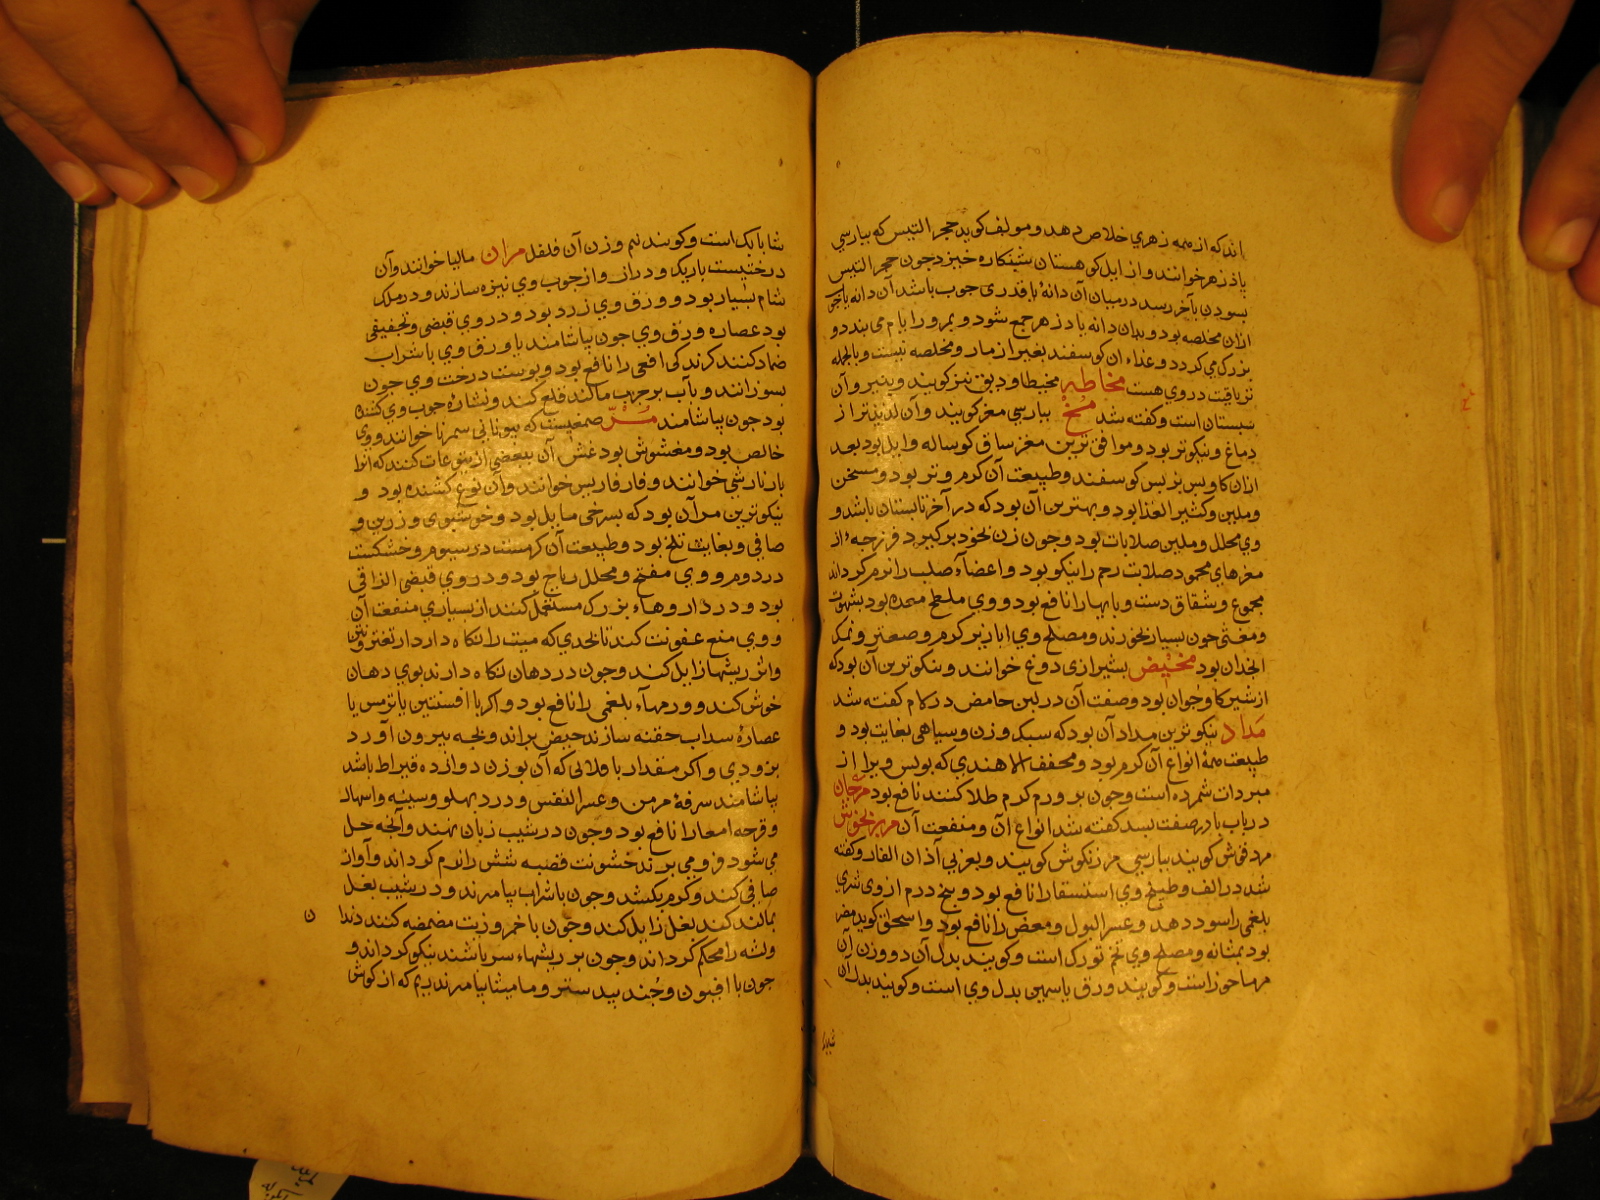 اند که از همه زهری خلاص دهد و مولف کوید حجر التیس که بپارسی
پادزهر خوانند و از ایل کوهستان شبنکاره خیزد جون حجر التیس
بسودن بآخر رسد درمیان آن دانهٔ با قدری جوب باشد آن دانه یا جوب
ازان مخلصه بود و بدان دانه پادزهر جمع شود و بمرور ایام می بندد و
بزرک می کردد و غذاء ان کوسفند بغیر از مار و مخلصه نیست و بالجمله
تریاقیت در وی هست مخاطه مخیطا و دبق نیز کویند و بنیر و آن
سبستان است و کفته شد مخ بپارسی مغز کویند و آن لذیذتر از
دماغ و نیکوتر بود و موافق ترین مغز ساق کوساله و ایل بود بعد
ازان کاو پس بز پس کوسفند و طبیعت آن کرم و تر بود و مسخن
و ملین و کثیر الغذا بود و بهترین آن بود که در آخر تابستان باشد و
وی محلل و ملین صلابات بود و جون زن بخود برکیرد فرزجه از
مغزهای محمود صلابت رحم را نیکو بود و اعضاء صلب را نرم کرداند
مجموع و شقاق دست و پایها را نافع بود و وی ملطخ معده بود بشهوت
و مغثی جون بسیار بخورند و مصلح وی ابازیر کرم و صعتر و نمک
انجدان بود مخیض بشیرازی دوغ خوانند و نیکوترین آن بود که
از شیر کاو جوان بود و صفت آن در لبن حامض در لام کفته شد
مداد نیکوترین مداد آن بود که سبک وزن و سیاهی بغایت بود و
طبیعت همهٔ انواع آن کرم بود و مجفف الا هندی که بولس ویرا از
مبردات شمرده است و جون بر ورم کرم طلا کنند نافع بود مرجان
در باب با در صفت بسد کفته شد انواع آن و منفعت آن مرزنجوش
مردقوش کویند بپارسی مرزنکوش کویند و بعربی آذان الفار و کفته
شد در الف و طبیخ وی استسقا را نافع بود و پنج درم از وی شری
بلغمی را سود دهد و عسر البول و مغص را نافع بود و اسحق کوید مضر
بود بمثانه و مصلح وی تخم تورک است و کویند بدل آن دو وزن آن
مرماحوز است و کویند ورق یاسمین بدل وی است و کویند بدل آن
شابابک
شابابک است و کویند نیم وزن آن فلفل مران مالیا خوانند و آن
درختیست باریک و دراز و از جوب وی نیزه سازند و در ملک
شام بسیار بود و ورق وی زرد بود و در وی قبضی و تجفیفی
بود عصاره ورق وی جون بیاشامند یا ورق وی با شراب
ضماد کنند کزندکی افعی را نافع بود و پوست درخت وی جون
بسوزانند و بآب بر جرب مالند قلع کند و نشارهٔ جوب وی کشنده
بود جون بیاشامند مُرّ صمغیست که بیونانی سمرنا خوانند و وی
خالص بود و مغشوش بود غش آن ببعضی از یتوعات کنند که انرا
بارنارشی خوانند و فارفاریس خوانند و آن نوع کشنده بود و
نیکوترین مر آن بود که بسرخی مایل بود و خوشبوی و زرین و
صافی و بغایت تلخ بود و طبیعت آن کرمست در سیوم و خشکست
در دوم و وی مفتح و محلل ریاح بود و در وی قبضی الزاقی
بود و در داروهاء بزرک مستعمل کنند از بسیاری منفعت آن
و وی منع عفونت کند تا بحدی که میت را نکاه دارد از تغیر و نتن
و اثر ریشها زایل کند و جون در دهان نکاه دارند بوی دهان
خوش کند و ورمهاء بلغمی را نافع بود و اکر با افسنتین یا ترمس یا
عصارهٔ سداب حقنه سازند حیض براند و بجه بیرون آورد
بزودی و اکر مقدار باقلائی که آن بوزن دوازده قیراط باشد
بیاشامند سرفهٔ مزمن و عسر النفس و درد پهلو و سینه و اسهال
و قرحه امعا را نافع بود و جون در شیب زبان نهند و آنجه حل
می شود فرو می برند خشونت قصبه شش را نرم کرداند و آواز
صافی کند و کرم بکشد و جون با شراب بیامیزند و در شیب بغل
بمالند کند بغل زایل کند و جون با خمر و زیت مضمضه کنند دندان
و لثه را محکم کرداند و جون بر ریشهاء سر باشند نیکو کرداند و
جون با افیون و جند بیدستر و مامیثا بیامیزند ریم که از کوش